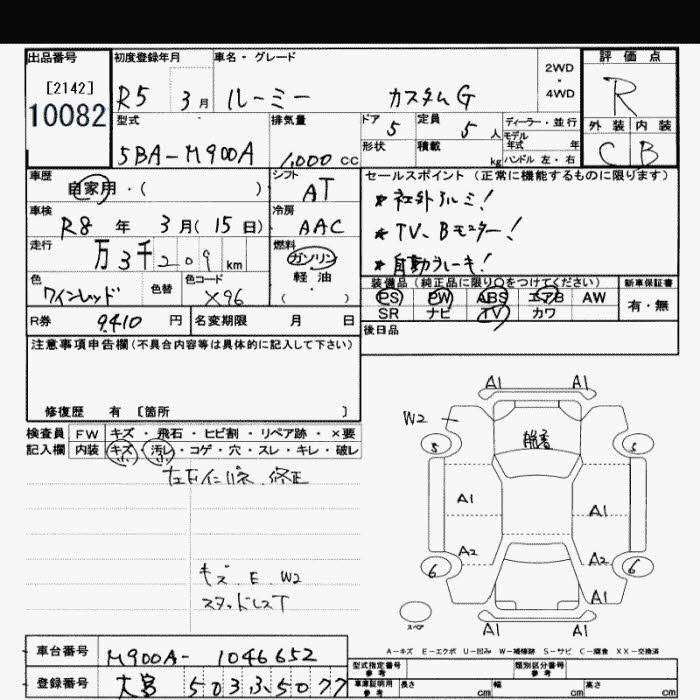 出品番号 初度登録年月 車名・グレード 評価点
[2142]
10082
R5 3月 ルーミー カスタムG 2WD・4WD R
型式 排気量 ドア 定員 ディーラー・並行 外装 内装
5BA-M900A 1,000 cc 5 5人 モデル年式 年 C B
形状 積載 kg ハンドル 左・右
車歴 シフト セールスポイント (正常に機能するものに限ります)
自家用・( ) AT ★社外アルミ!
車検 冷房
R8年 3月(15日) AAC ★TV、Bモニター!
走行 燃料
万3千209km ガソリン ★自動ブレーキ!
色 色替 色コード 軽油
ワインレッド X96 ( ・ )
装備品 (純正品に限り○をつけてください) 新車保証書
PS PW ABS エアB AW 有・無
SR ナビ TV カワ
R券 9410円 名変期限 月 日
後日品
注意事項申告欄(不具合内容等は具体的に記入して下さい)
修復歴 有 [箇所 ]
検査員 FW キズ・飛石・ヒビ割・リペア跡・×要
記入欄 内装 キズ・汚レ・コゲ・穴・スレ・キレ・破レ
修正
キズ E W2
スタッドレスT
A1 A1
W2
5 5
A1 A1
A2 A2
6 6
A1
スペア
A1 A1
A-キズ E-エクボ U-凹み W-補修跡 S-サビ C-腐食 XX-交換済
車台番号 M900A-1046652
型式指定番号 参考 類別区分番号 参考
登録番号 503 5077
車庫証明用 参考 長さ cm 幅 cm 高さ cm